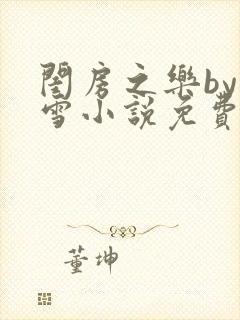 閨房之樂by
雪小說免費
董坤